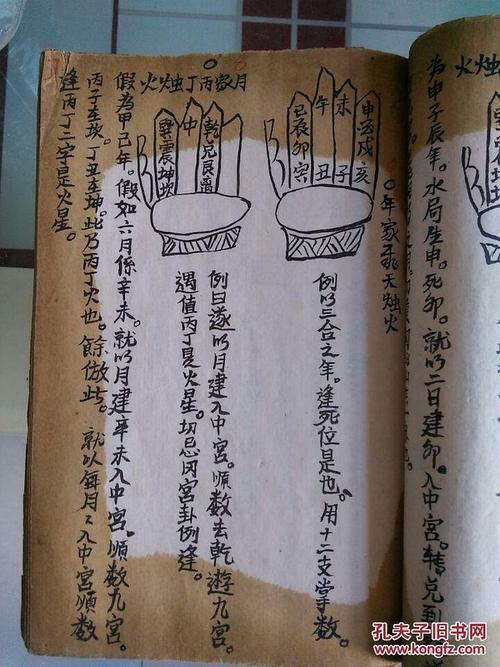 為申子辰年。水局生申。死卯。就以二日建卯。入中宮。轉兑到
年家天烛火
申酉戌亥
未子
午丑
巳辰卯寅
例以三合之年。逢死位是也。用十二支掌数。
月家丙丁烛火
乾兑艮離
中
巽震坤坎
例曰遂以月建入中宮。順数去乾遊九宮。
遇值丙丁是火星。切忌冈宮卦例逢。
假為甲己年。假如六月係辛未。就以月建辛未入中宮。順数九宮。
丙子在坎。丁丑在坤。此乃丙丁火也。餘倣此。就以每月々入中宮順数
逢丙丁二字是火星。
孔夫子旧书网
www.kongfz.com